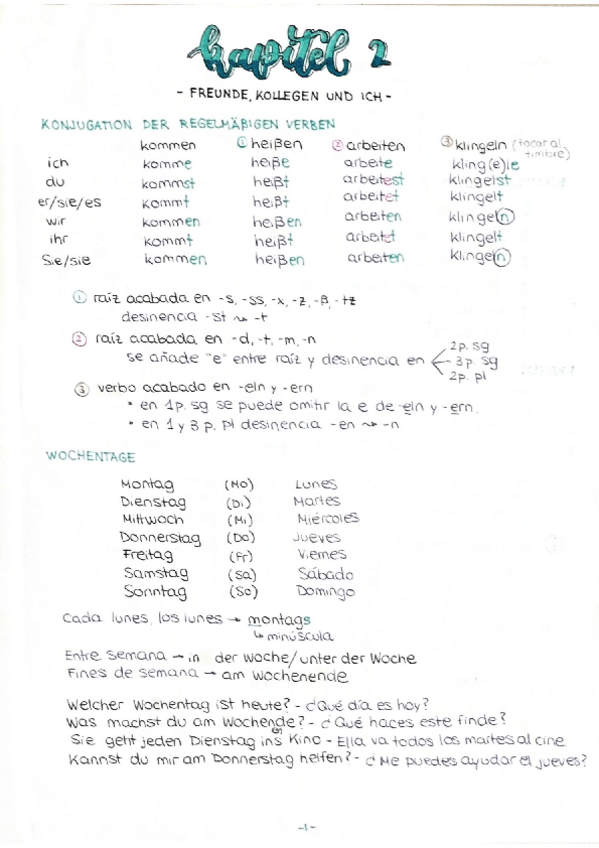 Kapitel 2
- FREUNDE, KOLLEGEN UND ICH -
KONJUGATION DER REGELMÄßIGEN VERBEN
kommen ① heißen ② arbeiten ③ klingeln (tocar al timbre)
ich komme heiße arbeite kling(e)le
du kommst heißt arbeitest klingelst
er/sie/es kommt heißt arbeitet klingelt
wir kommen heißen arbeiten klingeln
ihr kommt heißt arbeitet klingelt
Sie/sie kommen heißen arbeiten klingeln
① raíz acabada en -s, -ss, -x, -z, -ß, -tz
desinencia -st ⤳ -t
② raíz acabada en -d, -t, -m, -n
se añade "e" entre raíz y desinencia en
2p. sg
3p. sg
2p. pl
③ verbo acabado en -eln y -ern
• en 1p. sg se puede omitir la e de -eln y -ern.
• en 1 y 3 p. pl desinencia -en ⤳ -n
WOCHENTAGE
Montag (Mo) Lunes
Dienstag (Di) Martes
Mittwoch (Mi) Miércoles
Donnerstag (Do) Jueves
Freitag (Fr) Viernes
Samstag (Sa) Sábado
Sonntag (So) Domingo
Cada lunes, los lunes → montags
↳ minúscula
Entre semana → in der Woche/unter der Woche
Fines de semana → am Wochenende
Welcher Wochentag ist heute? - ¿Qué día es hoy?
Was machst du am Wochende? - ¿Qué haces este finde?
en
Sie geht jeden Dienstag ins Kino - Ella va todos los martes al cine
Kannst du mir am Donnerstag helfen? - ¿Me puedes ayudar el jueves?
-1-